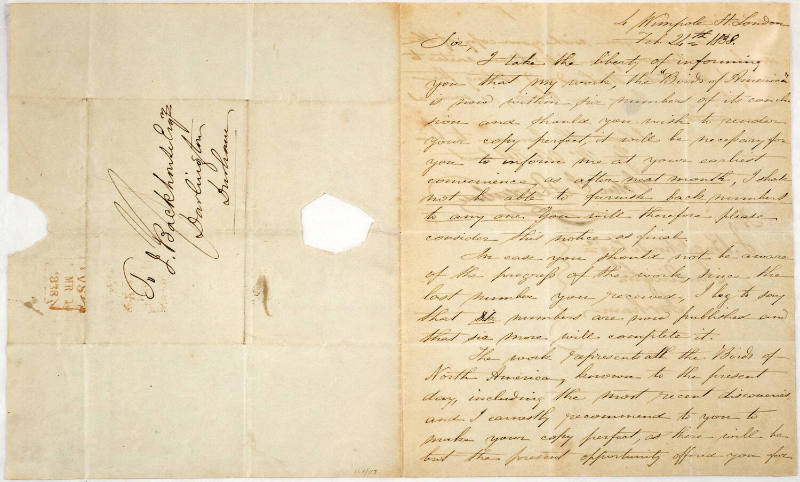 To
J. Backhouse Esqr
Darlington
Durham
4 Wimpole St. London
Feb. 24th 1838.
Sir,
I take the liberty of informing
you that my work, the "Birds of America"
is now within six numbers of its conclu
sion and should you wish to render
your copy perfect, it will be necessary for
you to inform me at your earliest
convenience, as after next month, I shall
not be able to furnish back numbers
to any one. You will therefore please
consider this notice as final.
In case you should not be aware
of the progress of the work, since the
last number you received, I beg to say
that 81 numbers are now published and
that six more will complete it.
The work represents all the Birds of
North America, known to the present
day, including the most recent discoveries
and I earnestly recommend to you to
make your copy perfect, as there will be
but the present opportunity offered you for